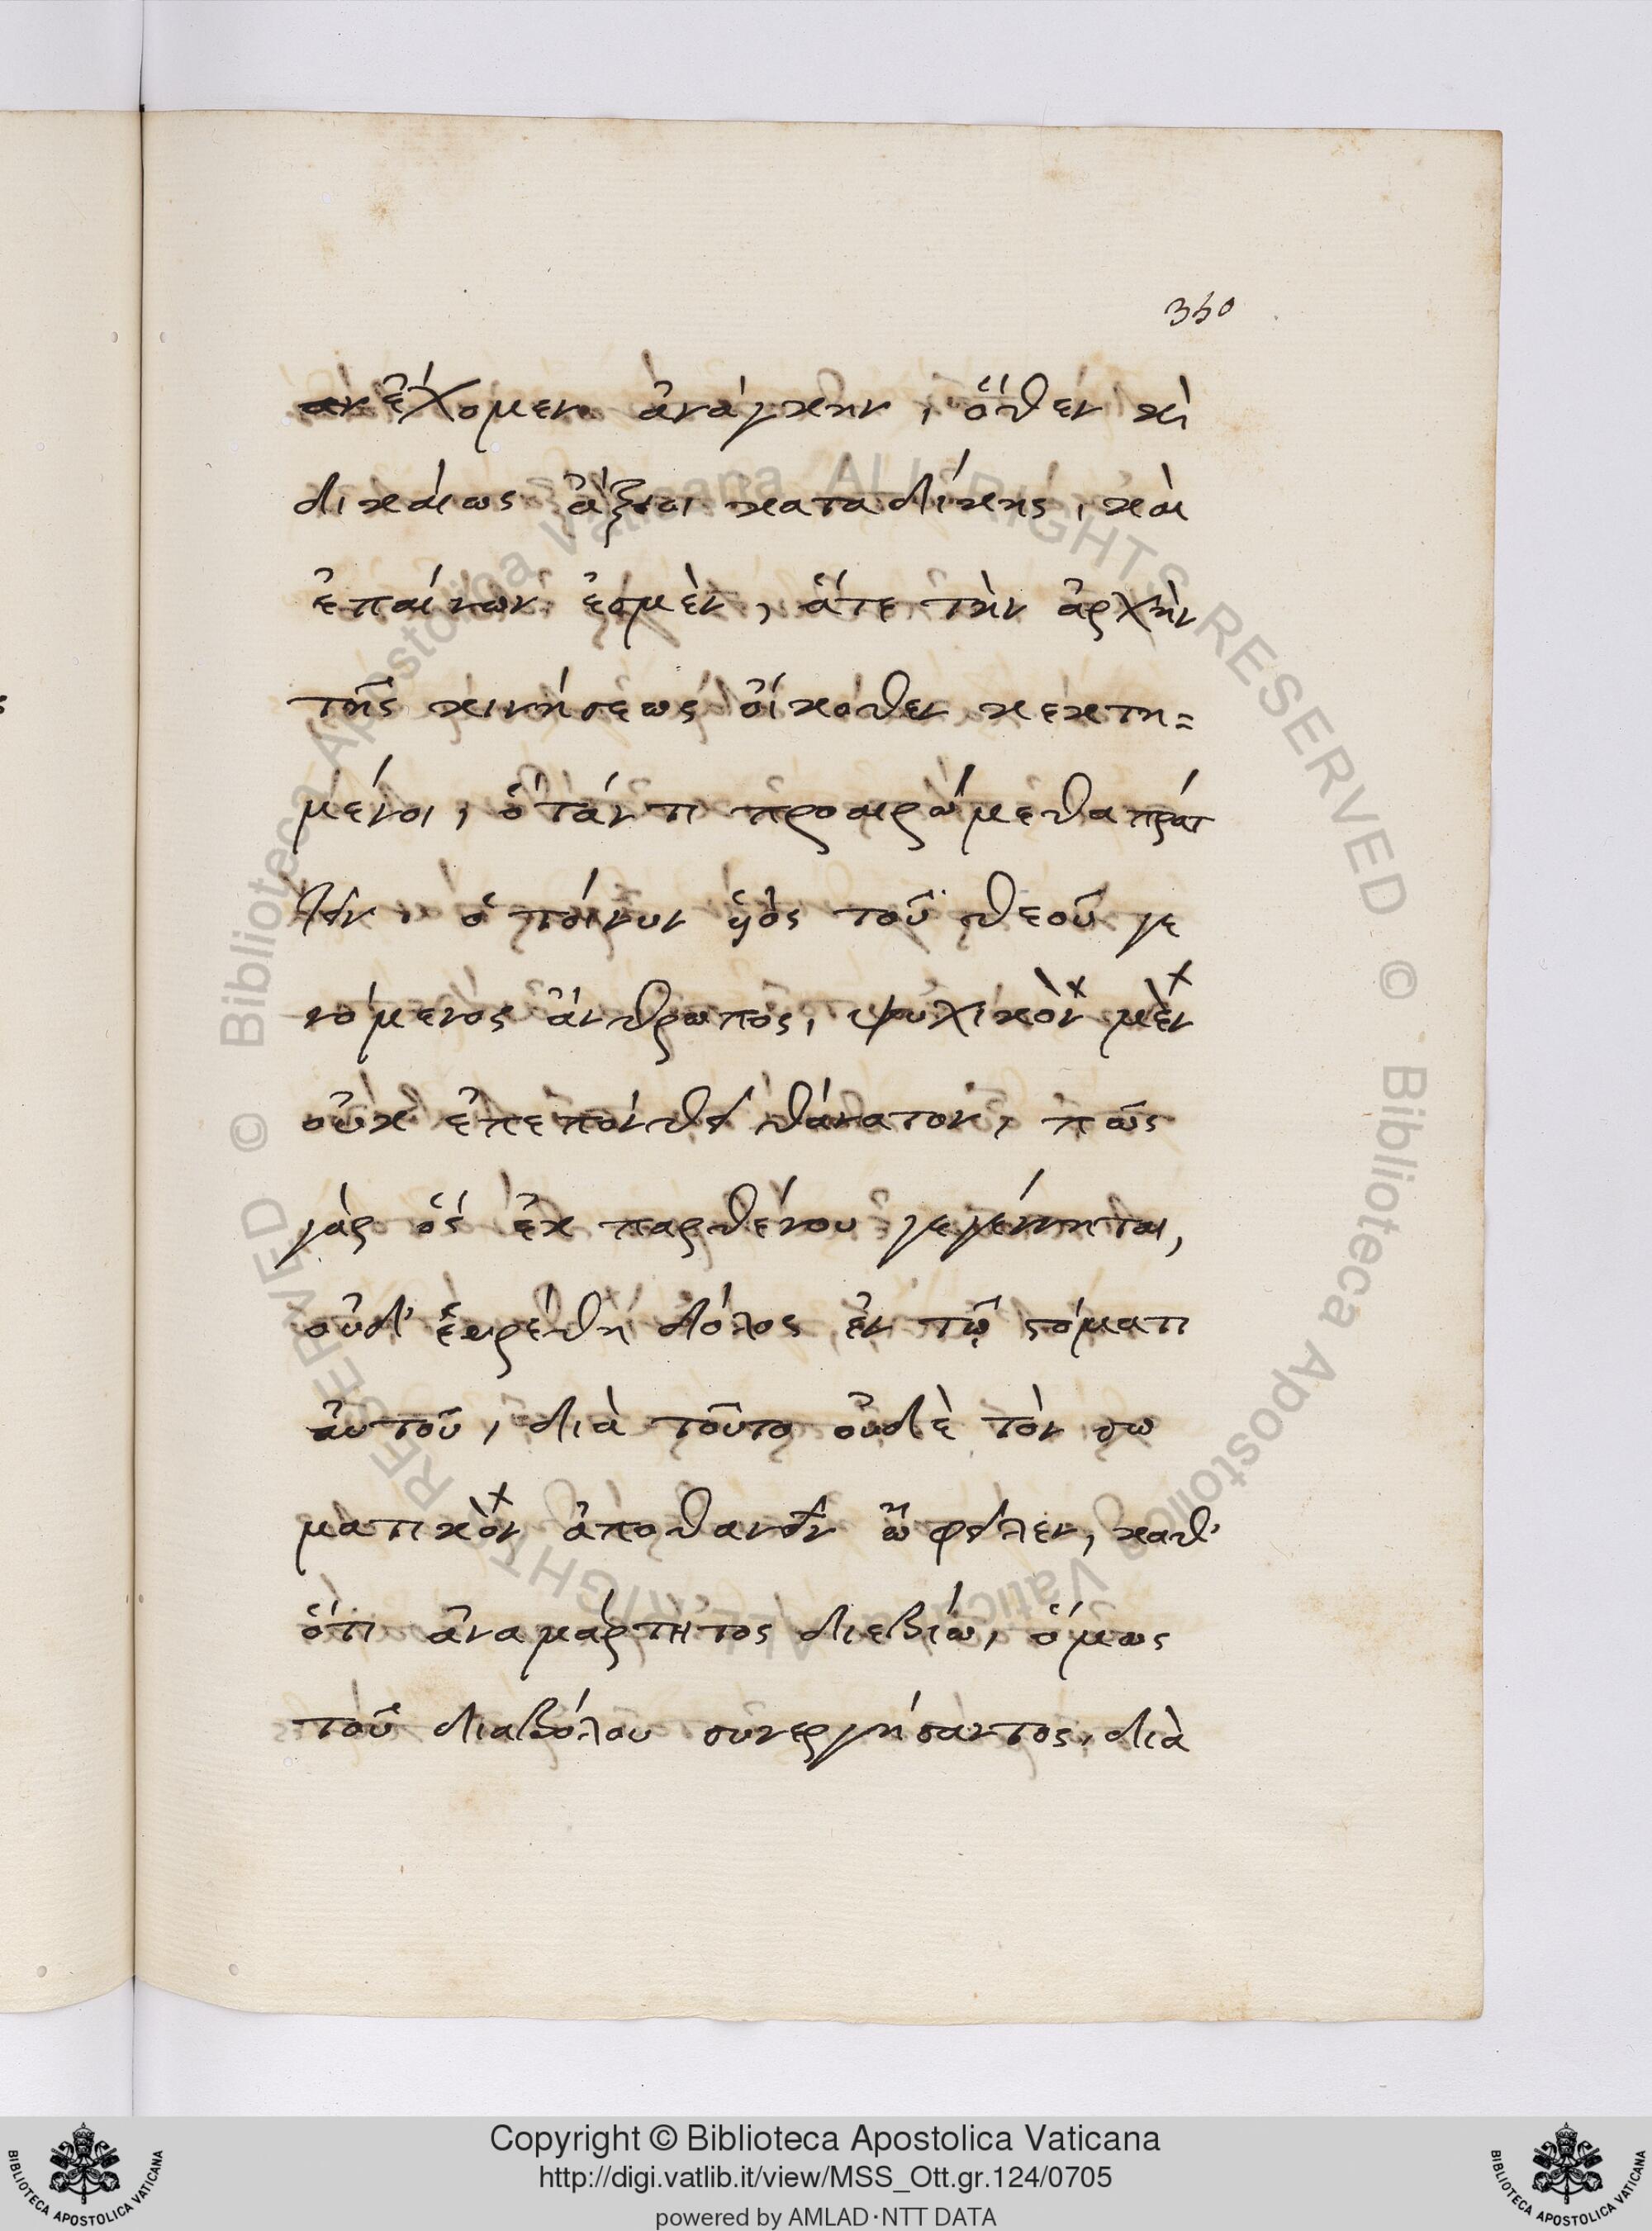 350
ἔχομεν ἀνάγκην, ὅθεν κὶ
δικαίως ἄξιοι καταδίκης, καὶ
ἐπαίνων ἐσμὲν, ἅτε τὴν ἀρχὴν
τῆς κινήσεως οἴκοθεν κεκτη=
μένοι, ὅτάν τι προαιρώμεθα πράτ
τειν. ὁ τοίνυν ὑιὸς τοῦ θεοῦ γε
νόμενος ἄνθρωπος, ψυχικὸν μὲν
οὐκ ἐπεπόνθει θάνατον, πῶς
γὰρ ὅς ἐκ παρθένου γεγέννηται,
οὐδ' ἑυρέθη δόλος ἐν τῷ στόματι
ἀυτοῦ, διὰ τοῦτο οὐδὲ τὸν σω
ματικὸν ἀποθανεῖν ὤφειλεν, καθ'
ὅτι ἀναμάρτητος διεβίω, ὅμως
τοῦ διαβόλου συνεργήσαντος, διὰ
© Biblioteca Apostolica Vaticana ALL RIGHTS RESERVED
© Biblioteca Apostolica Vaticana ALL RIGHTS RESERVED
Copyright © Biblioteca Apostolica Vaticana
http://digi.vatlib.it/view/MSS_Ott.gr.124/0705
powered by AMLAD·NTT DATA
BIBLIOTECA APOSTOLICA VATICANA
BIBLIOTECA APOSTOLICA VATICANA